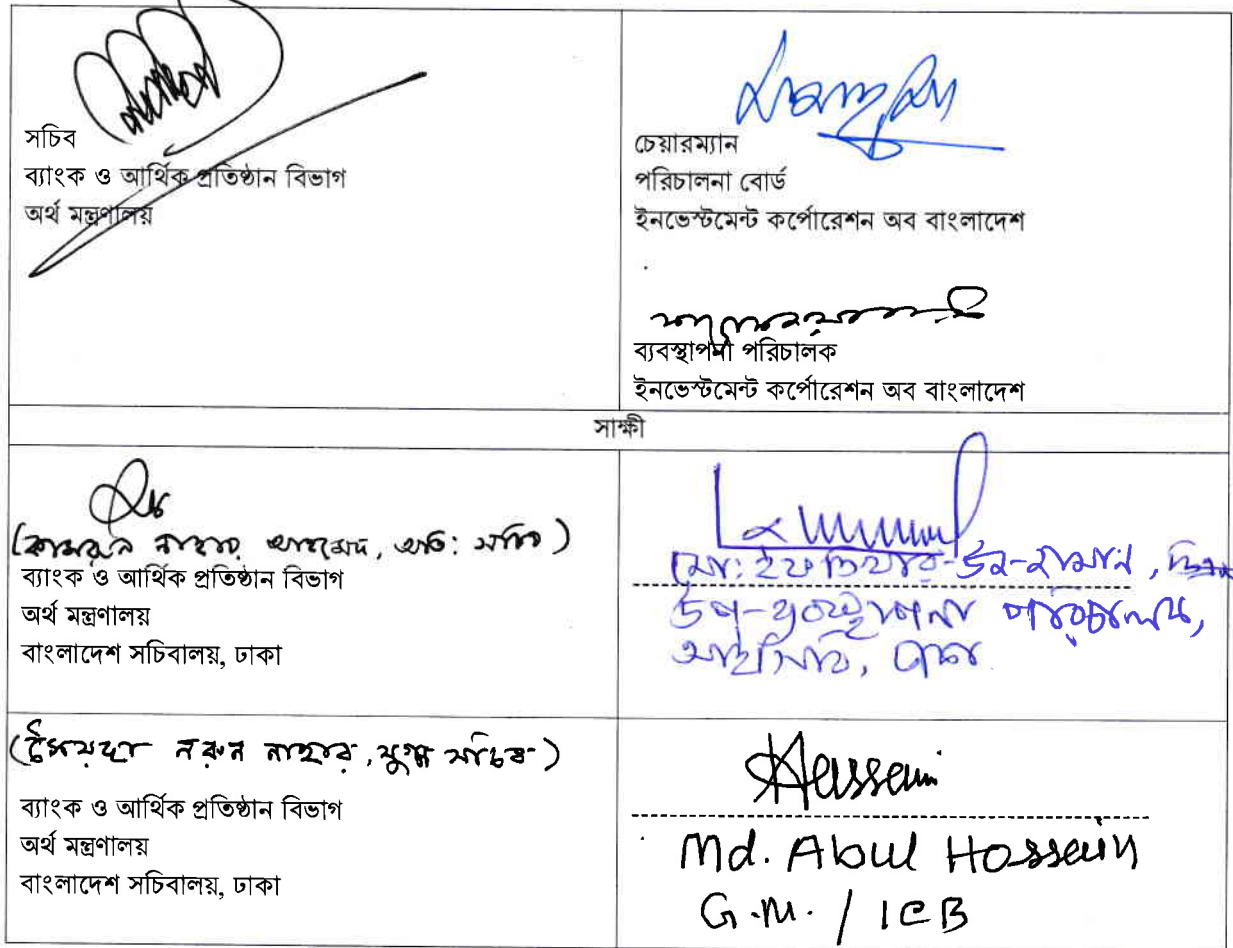 সচিব
ব্যাংক ও আর্থিক প্রতিষ্ঠান বিভাগ
অর্থ মন্ত্রণালয়
চেয়ারম্যান
পরিচালনা বোর্ড
ইনভেস্টমেন্ট কর্পোরেশন অব বাংলাদেশ
ব্যবস্থাপনা পরিচালক
ইনভেস্টমেন্ট কর্পোরেশন অব বাংলাদেশ
সাক্ষী
(কামরুন নাহার আহমেদ, অতি: সচিব)
ব্যাংক ও আর্থিক প্রতিষ্ঠান বিভাগ
অর্থ মন্ত্রণালয়
বাংলাদেশ সচিবালয়, ঢাকা
মো: ইফতিখার-উজ-জামান,
উপ-ব্যবস্থাপনা পরিচালক,
আইসিবি, ঢাকা
(সৈয়দা নরুন নাহার, যুগ্ম সচিব)
ব্যাংক ও আর্থিক প্রতিষ্ঠান বিভাগ
অর্থ মন্ত্রণালয়
বাংলাদেশ সচিবালয়, ঢাকা
Hossain
Md. Abul Hossain
G.M. / ICB